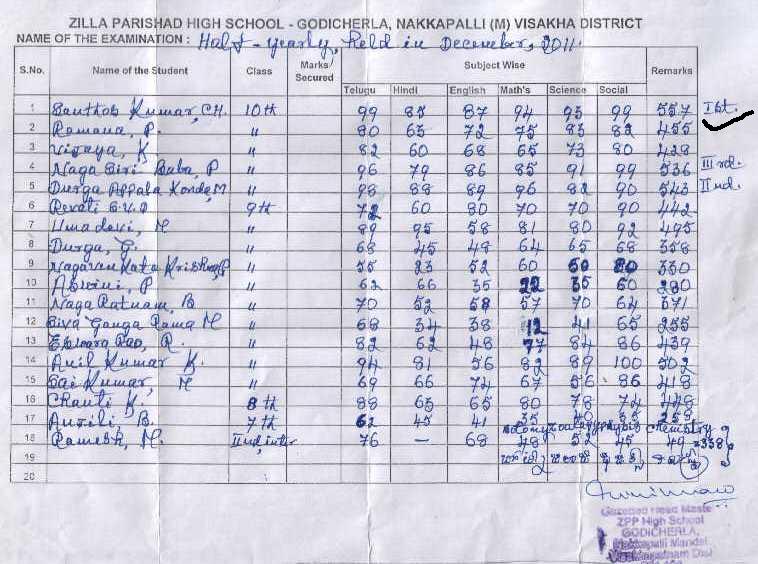 ZILLA PARISHAD HIGH SCHOOL - GODICHERLA, NAKKAPALLI (M) VISAKHA DISTRICT
NAME OF THE EXAMINATION : Half - yearly, Held in December, 2011.
S.No. Name of the Student Class Marks Secured Subject Wise Remarks
Telugu Hindi English Math's Science Social
1 Santhosh Kumar, CH. 10th 99 85 87 94 93 99 557 Ist.
2 Ramana, P. " 80 63 72 75 83 82 455
3 Vijaya, K " 82 60 68 65 73 80 428
4 Naga Siri Baba, P " 96 79 86 85 91 99 536 IIIrd.
5 Durga Appala Konda, M " 98 88 89 96 82 90 543 IInd.
6 Revati 9th 72 60 80 70 70 90 442
7 Umadevi, M " 89 95 58 81 80 92 495
8 Durga, G. " 68 45 48 64 65 68 358
9 " 55 23 52 60 50 80
10 Aswini, P " 62 66 35 22 35 60 280
11 Naga Ratnam, B " 70 52 58 57 70 64 371
12 Siva Ganga Rama M " 68 34 38 12 41 65 255
13 Eswara Rao, R. " 82 62 48 77 84 86 439
14 Anil Kumar K. " 94 81 56 82 89 100 502
15 Sai Kumar, M " 69 66 74 67 56 86 418
16 Chanti K. 8th 88 65 65 80 78 72 448
17 B. 7th 62 45 41 35 40 35 258
18 Ramesh, M. IInd, inter 76 – 68 48 52 45 49 =338
19
20
Gazetted Head Master
ZPP High School
GODICHERLA,
Nakkapalli Mandal
Visakhapatnam Dist